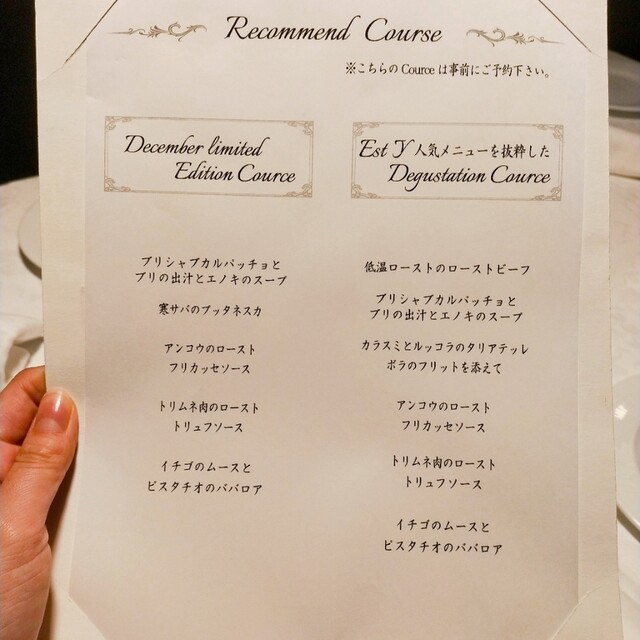 Recommend Course
※こちらの Cource は事前にご予約下さい。
December limited
Edition Cource
ブリシャブカルパッチョと
ブリの出汁とエノキのスープ
寒サバのプッタネスカ
アンコウのロースト
フリカッセソース
トリムネ肉のロースト
トリュフソース
イチゴのムースと
ピスタチオのババロア
Est Y 人気メニューを抜粋した
Degustation Cource
低温ローストのローストビーフ
ブリシャブカルパッチョと
ブリの出汁とエノキのスープ
カラスミとルッコラのタリアテッレ
ボラのフリットを添えて
アンコウのロースト
フリカッセソース
トリムネ肉のロースト
トリュフソース
イチゴのムースと
ピスタチオのババロア